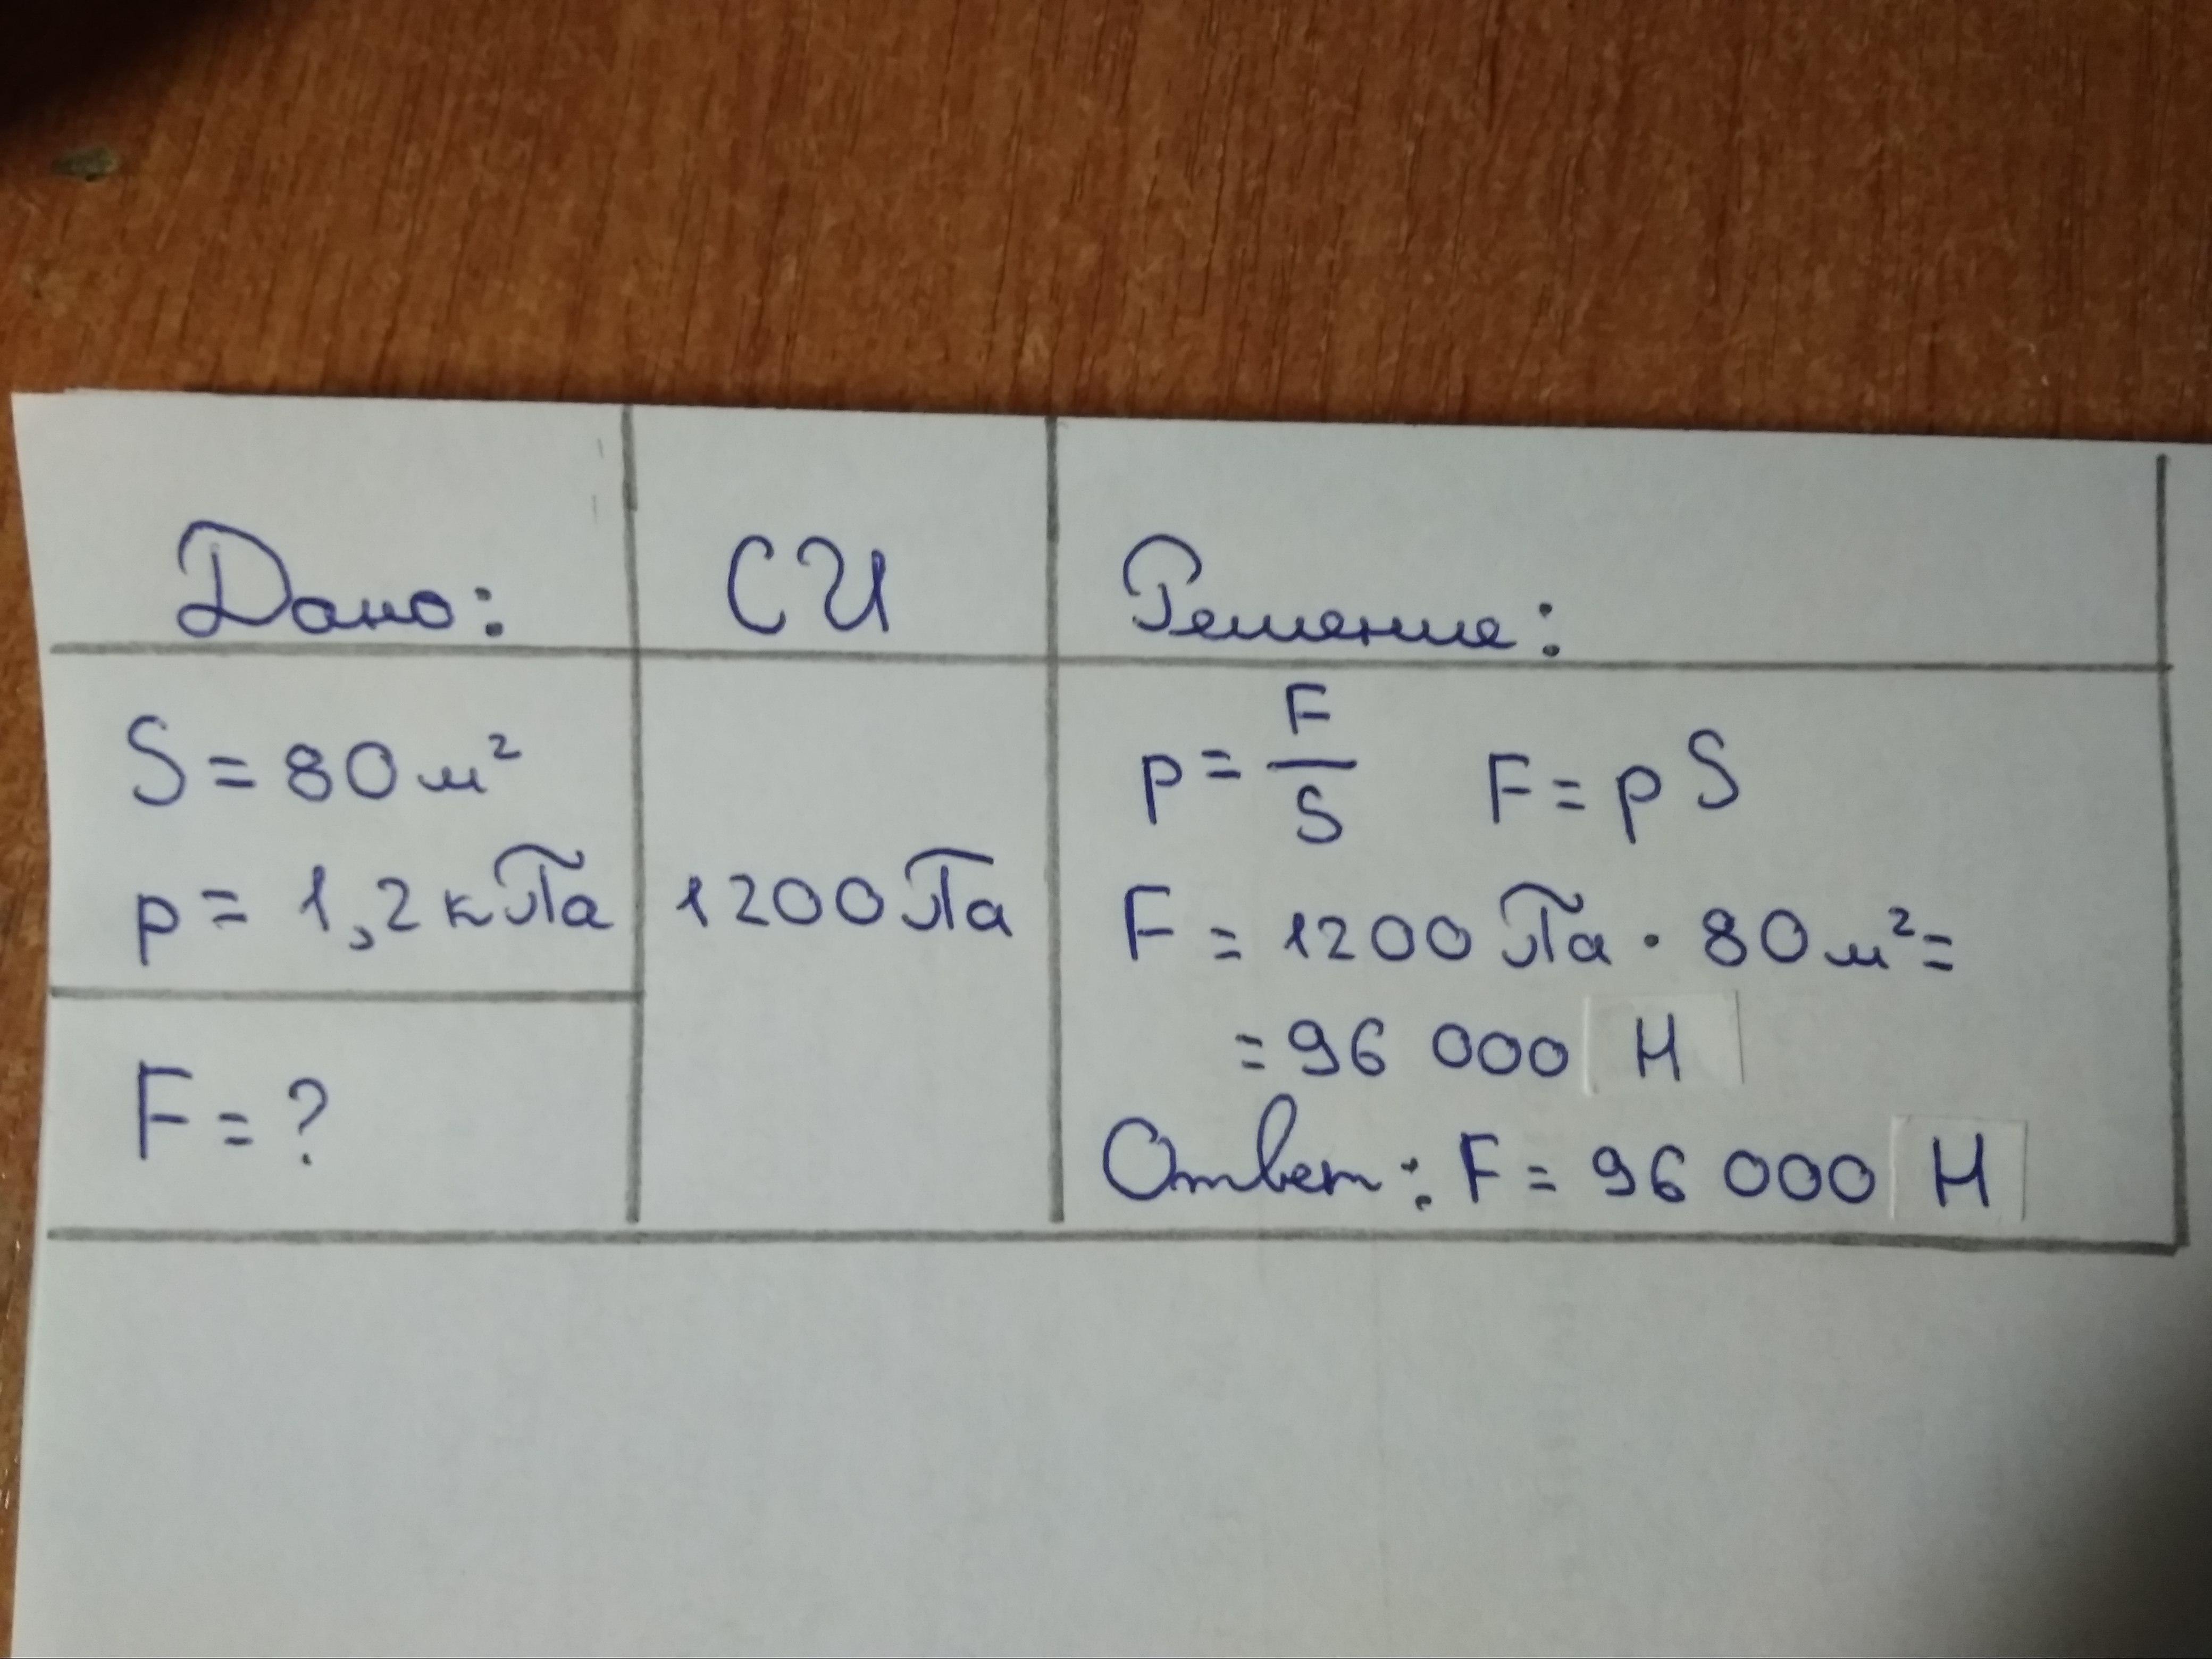 Дано:
СИ
Решение:
S = 80 м²
p = 1,2 кПа
F = ?
1200 Па
p = F/S F = pS
F = 1200 Па · 80 м² =
= 96 000 Н
Ответ: F = 96 000 Н